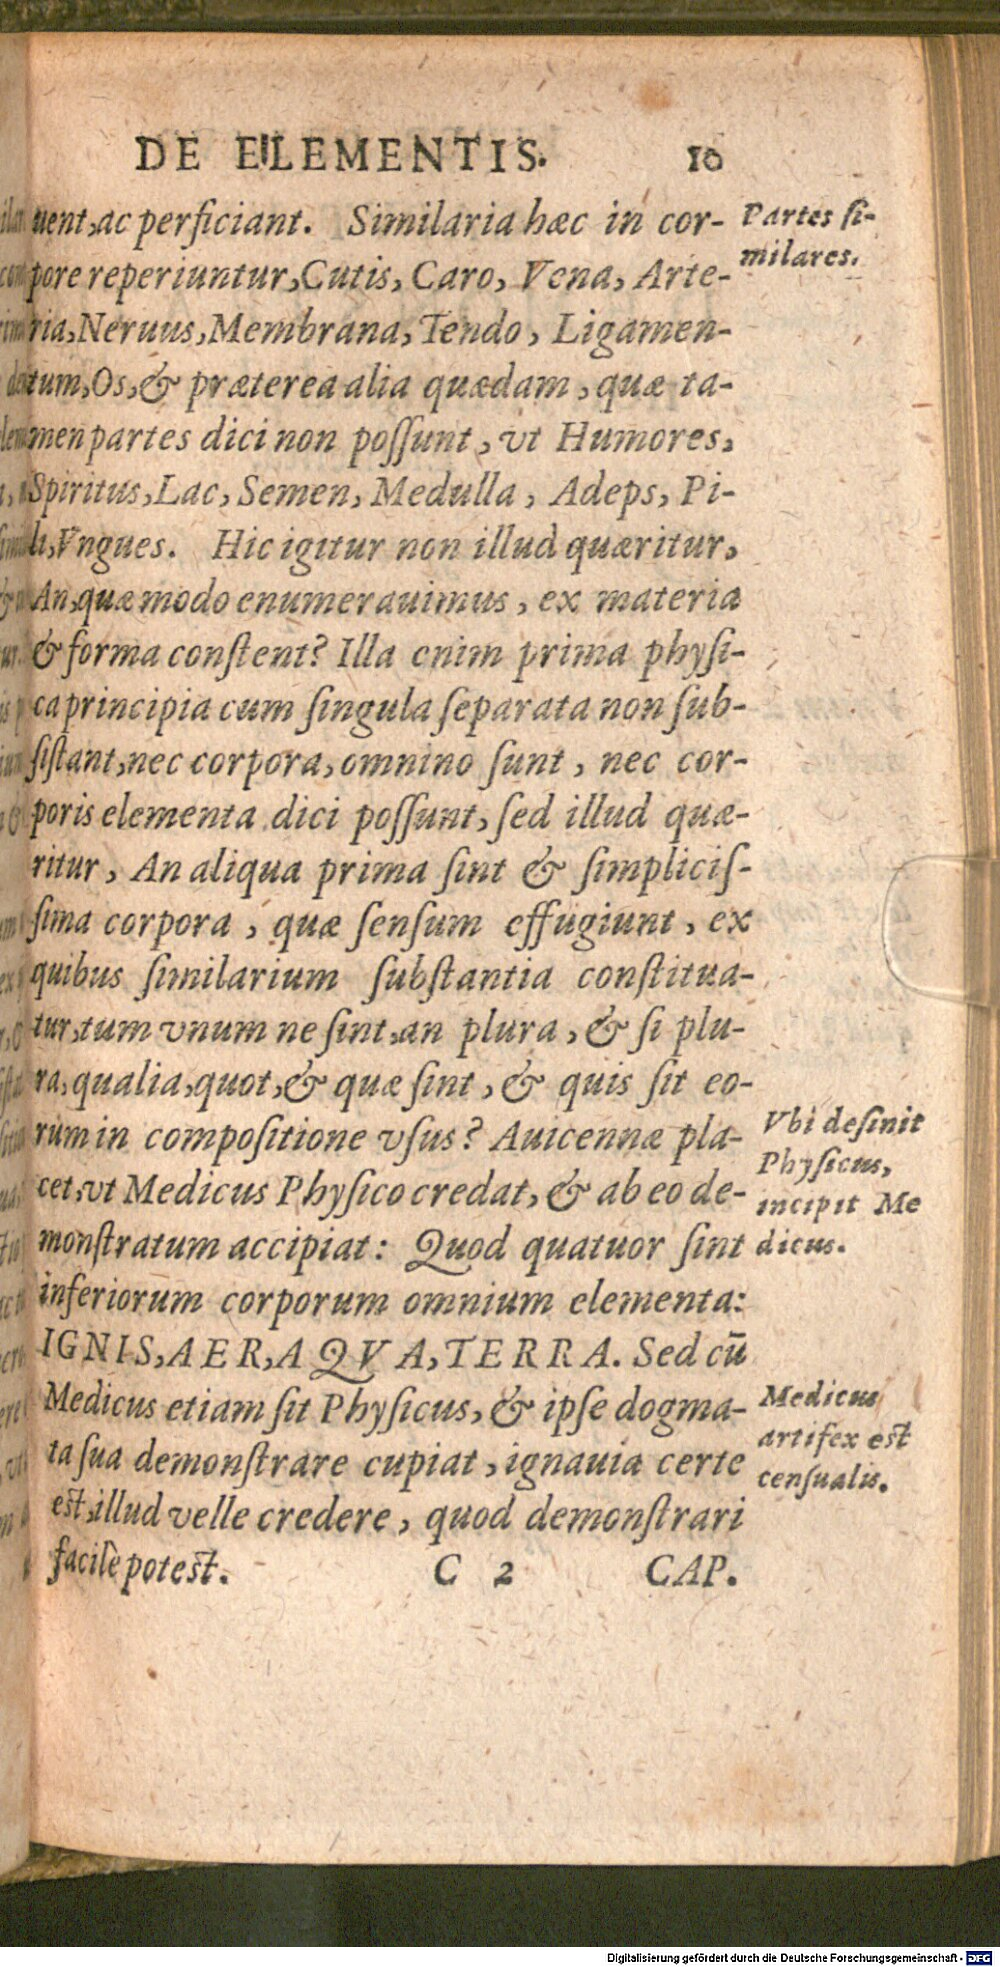 DE ELEMENTIS. 10
uent, ac perficiant. Similaria hæc in cor-
pore reperiuntur, Cutis, Caro, Vena, Arte-
ria, Neruus, Membrana, Tendo, Ligamen-
tum, Os, & præterea alia quædam, quæ ta-
men partes dici non poſſunt, vt Humores,
Spiritus, Lac, Semen, Medulla, Adeps, Pi-
li, Vngues. Hic igitur non illud quæritur,
An, quæ modo enumerauimus, ex materia
& forma conſtent? Illa enim prima phyſi-
ca principia cum ſingula ſeparata non ſub-
ſiſtant, nec corpora, omnino ſunt, nec cor-
poris elementa dici poſſunt, ſed illud quæ-
ritur, An aliqua prima ſint & ſimpliciſ-
ſima corpora, quæ ſenſum effugiunt, ex
quibus ſimilarium ſubſtantia conſtitua-
tur, tum vnum ne ſint, an plura, & ſi plu-
ra, qualia, quot, & quæ ſint, & quis ſit eo-
rum in compoſitione vſus? Auicennæ pla-
cet, vt Medicus Phyſico credat, & ab eo de-
monſtratum accipiat: Quod quatuor ſint
inferiorum corporum omnium elementa:
IGNIS, AER, AQVA, TERRA. Sed cū
Medicus etiam ſit Phyſicus, & ipſe dogma-
ta ſua demonſtrare cupiat, ignauia certe
eſt, illud velle credere, quod demonſtrari
facilè poteſt. C 2 CAP.
Partes ſi-
milares.
Vbi deſinit
Phyſicus,
incipit Me
dicus.
Medicus
artifex eſt
cenſualis.
Digitalisierung gefördert durch die Deutsche Forschungsgemeinschaft - DFG